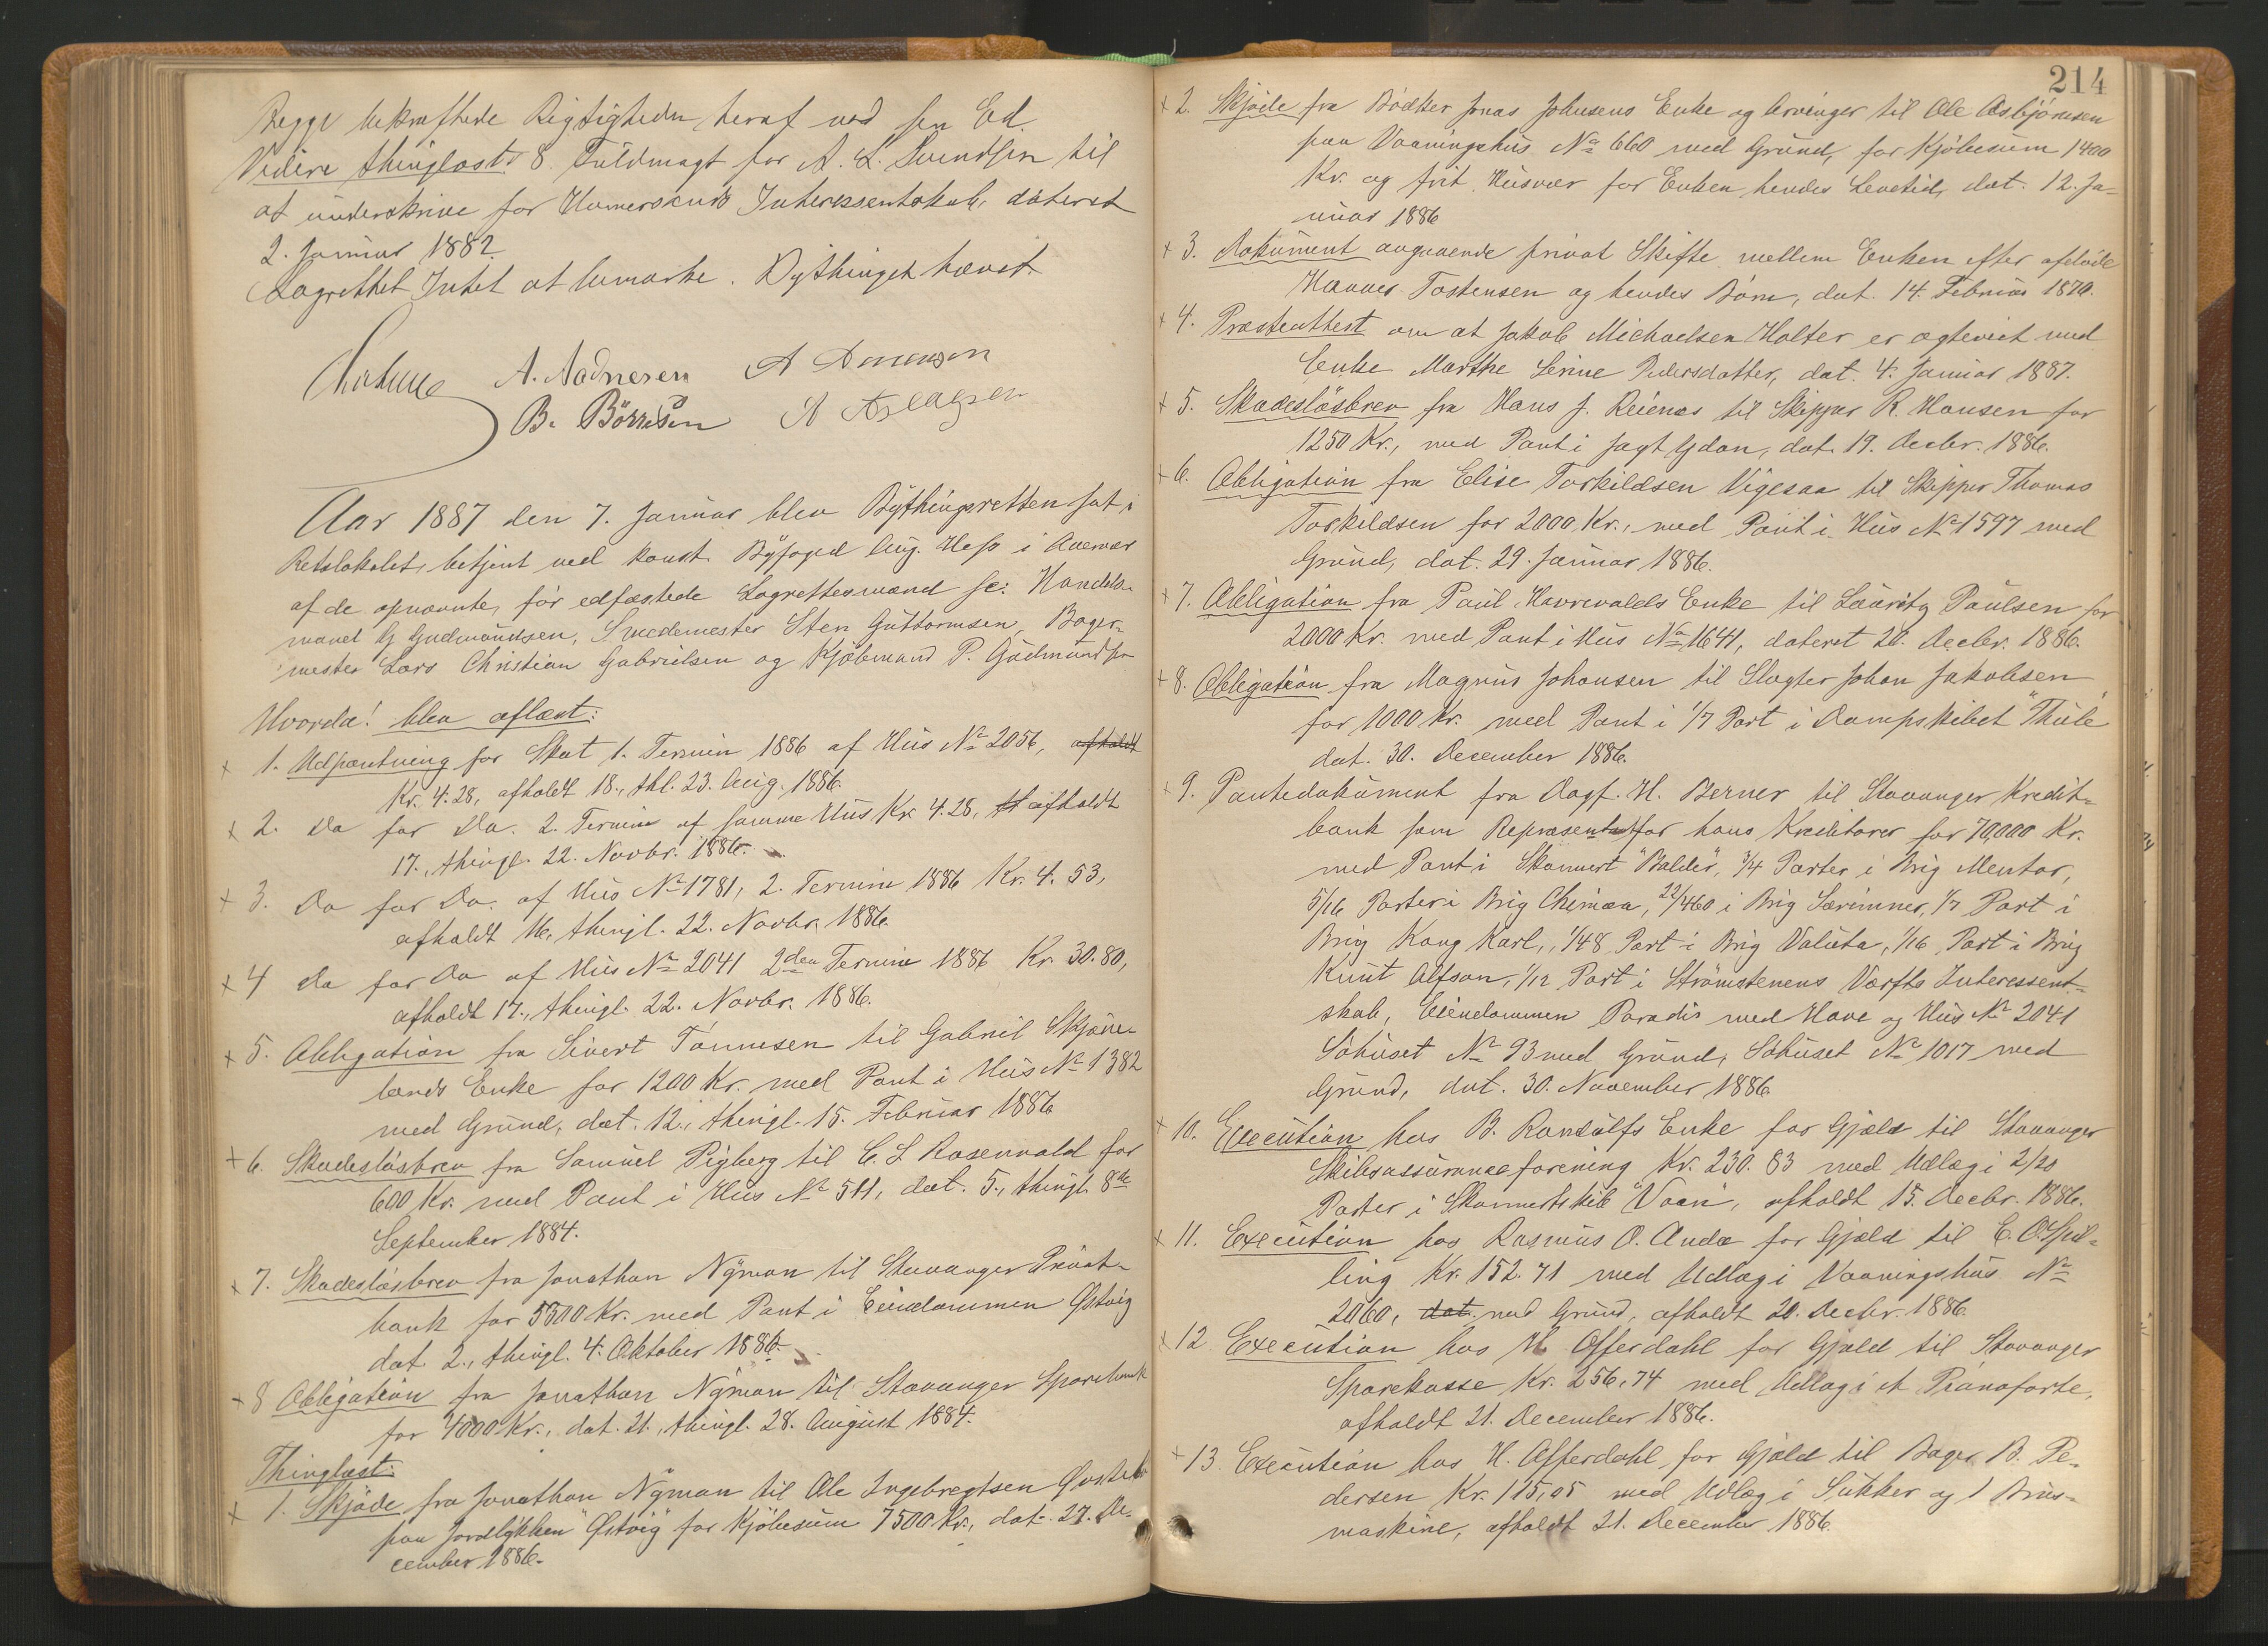 Begge bekræftede Rigtigheden heraf ved sin Ed.
Videre thinglæst: 8. Fuldmagt for A. L. Svendsen til
at underskrive for Interessentskab, dateret
2. Januar 1882.
Lagrettet Intet at bemærke. Bythinget hævet.
A. Aadnesen
B. Börresen A Aslagsen
Aar 1887 den 7. Januar blev Bythingsretten sat i
Retslokalet, betjent ved const. Byfoged Aug. Hess i Overvær
af de opnævnte, før edfæstede Lagrettesmænd sc: Handels-
mand G Gudmundsen, Smedemester Sten Guttormsen, Bager-
mester Lars Christian Gabrielsen og Kjøbmand P. Gudmundsen
Hvorda! blev aflæst:
x 1. Udpantning for Skat 1. Termin 1886 af Hus No 2056, afholdt
Kr. 4.28, afholdt 18., thl. 23. Aug. 1886.
x 2. Do for Do. 2. Termin af samme Hus Kr 4.28, th afholdt
17., thingl. 22. Novbr. 1886.
x 3. Do for Do. af Hus No 1781, 2. Termin 1886 Kr. 4.53,
afholdt 16, thingl. 22. Novbr. 1886
x 4 Do for Do af Hus No 2041 2den Termin 1886 Kr. 30.80,
afholdt 17., thingl. 22. Novbr. 1886.
x 5. Obligation fra Sivert Tönnesen til Gabriel Skjæve-
lands Enke for 1200 Kr. med Pant i Hus No 1382
med Grund, dat. 12., thingl. 15. Februar 1886
x 6. Skadesløsbrev fra Samuel Pigberg til C. L Rosenvald for
600 Kr. med Pant i Hus No 511, dat. 5., thingl. 8de
September 1884.
x 7. Skadesløsbrev fra Jonathan Nyman til Stavanger Privat-
bank for 5300 Kr. med Pant i Eiendommen Østvig
dat. 2., thingl. 4. Oktober 1886.
x 8 Obligation fra Jonathan Nyman til Stavanger Sparebank
for 4000 Kr., dat. 21., thingl. 28. August 1884.
Thinglæst:
x 1. Skjøde fra Jonathan Nyman til Ole Ingebregtsen
paa Jordlykken "Østvig" for Kjøbesum 7500 Kr., dat. 27. De-
cember 1886.
214
x 2. Skjøde fra Bødker Jonas Johnsens Enke og Arvinger til Ole Asbjørnsen
paa Vaaningshus No 660 med Grund, for Kjøbesum 1400
Kr. og frit Husvær for Enken hendes Levetid, dat. 12. Ja-
nuar 1886
x 3. Dokument angaaende privat Skifte mellem Enken efter afdøde
Hannes Tostensen og hendes Børn, dat. 14. Februar 1870.
x 4. Præsteattest om at Jakob Michaelsen Holter er ægteviet med
Enke Marthe Serine Pedersdatter, dat. 4. Januar 1887.
x 5. Skadesløsbrev fra Hans J. Reienæs til Skipper R. Hansen for
1250 Kr., med Pant i Jagt Ydon, dat. 19. Decbr. 1886.
x 6. Obligation fra Elise Torkildsen Vigesaa til Skipper Thomas
Torkildsen for 2000 Kr., med Pant i Hus No 1597 med
Grund, dat. 29. Januar 1886.
x 7. Obligation fra Paul Havrevolds Enke til Lauritz Paulsen for
2000 Kr. med Pant i Hus No 1641, dateret 20. Decbr. 1886.
x 8. Obligation fra Magnus Johansen til Slagter Johan Jakobsen
for 1000 Kr. med Pant i 1/7 Part i Dampskibet "Thule"
dat. 30. December 1886.
x 9. Pantedokument fra Ovgf. H. Berner til Stavanger Kredit-
bank som Repræsentant for hans Kreditorer for 70,000 Kr.
med Pant i Skonnert "Balder", 3/4 Parter i Brig Mentor,
5/16 Parter i Brig Chimæa, 22/460 i Brig Særimner, 1/7 Part i
Brig Kong Karl, 1/48 Part i Brig Valuta, 1/16 Part i Brig
Knut Alfson, 1/12 Part i Strömstenens Værfts Interessent-
skab, Eiendommen Paradis med Have og Hus No 2041
Søhuset No 93 med Grund, Søhuset No 1017 med
Grund, dat. 30. November 1886
x 10. Execution hos B. Randulfs Enke for Gjæld til Stavanger
Skibsassuranceforening Kr. 230.83 med Udlæg i 2/20
Parter i Skonnertskib "Vaan", afholdt 15. Decbr. 1886.
x 11. Execution hos Rasmus O. Auda for Gjæld til C. O. Spil-
ling Kr. 152.71 med Udlæg i Vaaningshus No
2060, dat. med Grund, afholdt 20. Decbr. 1886
x 12 Execution hos H. Offerdahl for Gjæld til Stavanger
Sparekasse Kr. 256,74 med Udlæg i et Pianoforte,
afholdt 21. December 1886.
x 13. Execution hos H. Offerdahl for Gjæld til Bager B. Pe-
dersen Kr. 115,05 med Udlæg i Sukker og 1 Brus-
maskine, afholdt 21. December 1886.